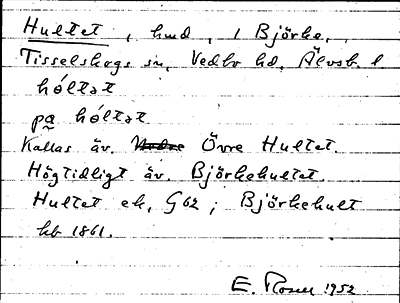 Hultet, hmd, i Björke,
Tisselskogs sn, Vedbo hd, Älvsb. l
hóltət
pa hóltət
Kallas äv. Övre Hultet.
Högtidligt äv. Björkehultet.
Hultet ek, G62; Björkehult
hb 1861.
E. Rosell 1952